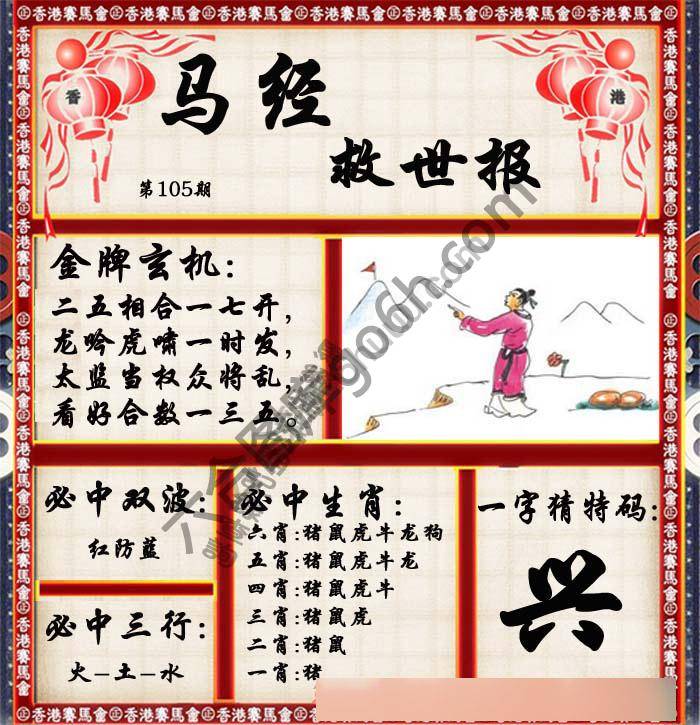 香港賽馬會
香
港
马经
救世报
第105期
金牌玄机:
二五相合一七开,
龙吟虎啸一时发,
太监当权众将乱,
看好合数一三五。
必中双波:
红防蓝
必中三行:
火-土-水
必中生肖:
六肖:猪鼠虎牛龙狗
五肖:猪鼠虎牛龙
四肖:猪鼠虎牛
三肖:猪鼠虎
二肖:猪鼠
一肖:猪
一字猜特码:
兴
六合图库go6h.com